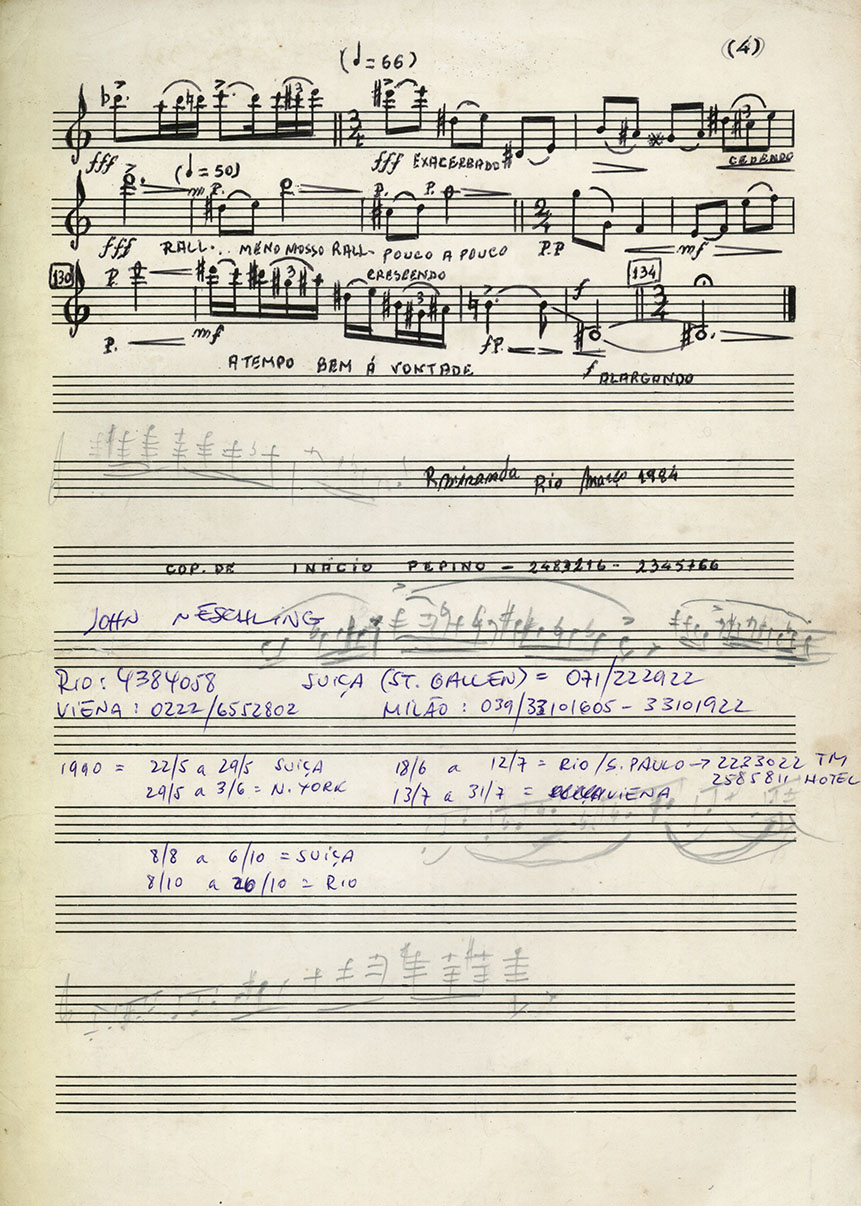 (♩=66) (4)
3
3
3/4
3
fff fff EXACERBADO CEDENDO
(♩=50)
m.p. p. p.
2/4
fff RALL... MENO MOSSO RALL- POUCO A POUCO P.P mf
130 p. CRESCENDO f 134
3
3
3/4
p. mf fp
A TEMPO BEM Á VONTADE f ALARGANDO
RMiranda Rio Março 1984
COP. DE INÁCIO PEPINO - 2487216 - 2345766
JOHN NESCHLING
RIO: 4384058 SUIÇA (ST. GALLEN) = 071/222922
VIENA: 0222/6552802 MILÃO: 039/33101605 - 33101922
1990 = 22/5 a 29/5 SUIÇA 18/6 a 12/7 = RIO/S. PAULO → 2233022 TM
2585811 HOTEL
29/5 a 3/6 = N. YORK 13/7 a 31/7 = VIENA
8/8 a 6/10 = SUIÇA
8/10 a 20/10 = RIO